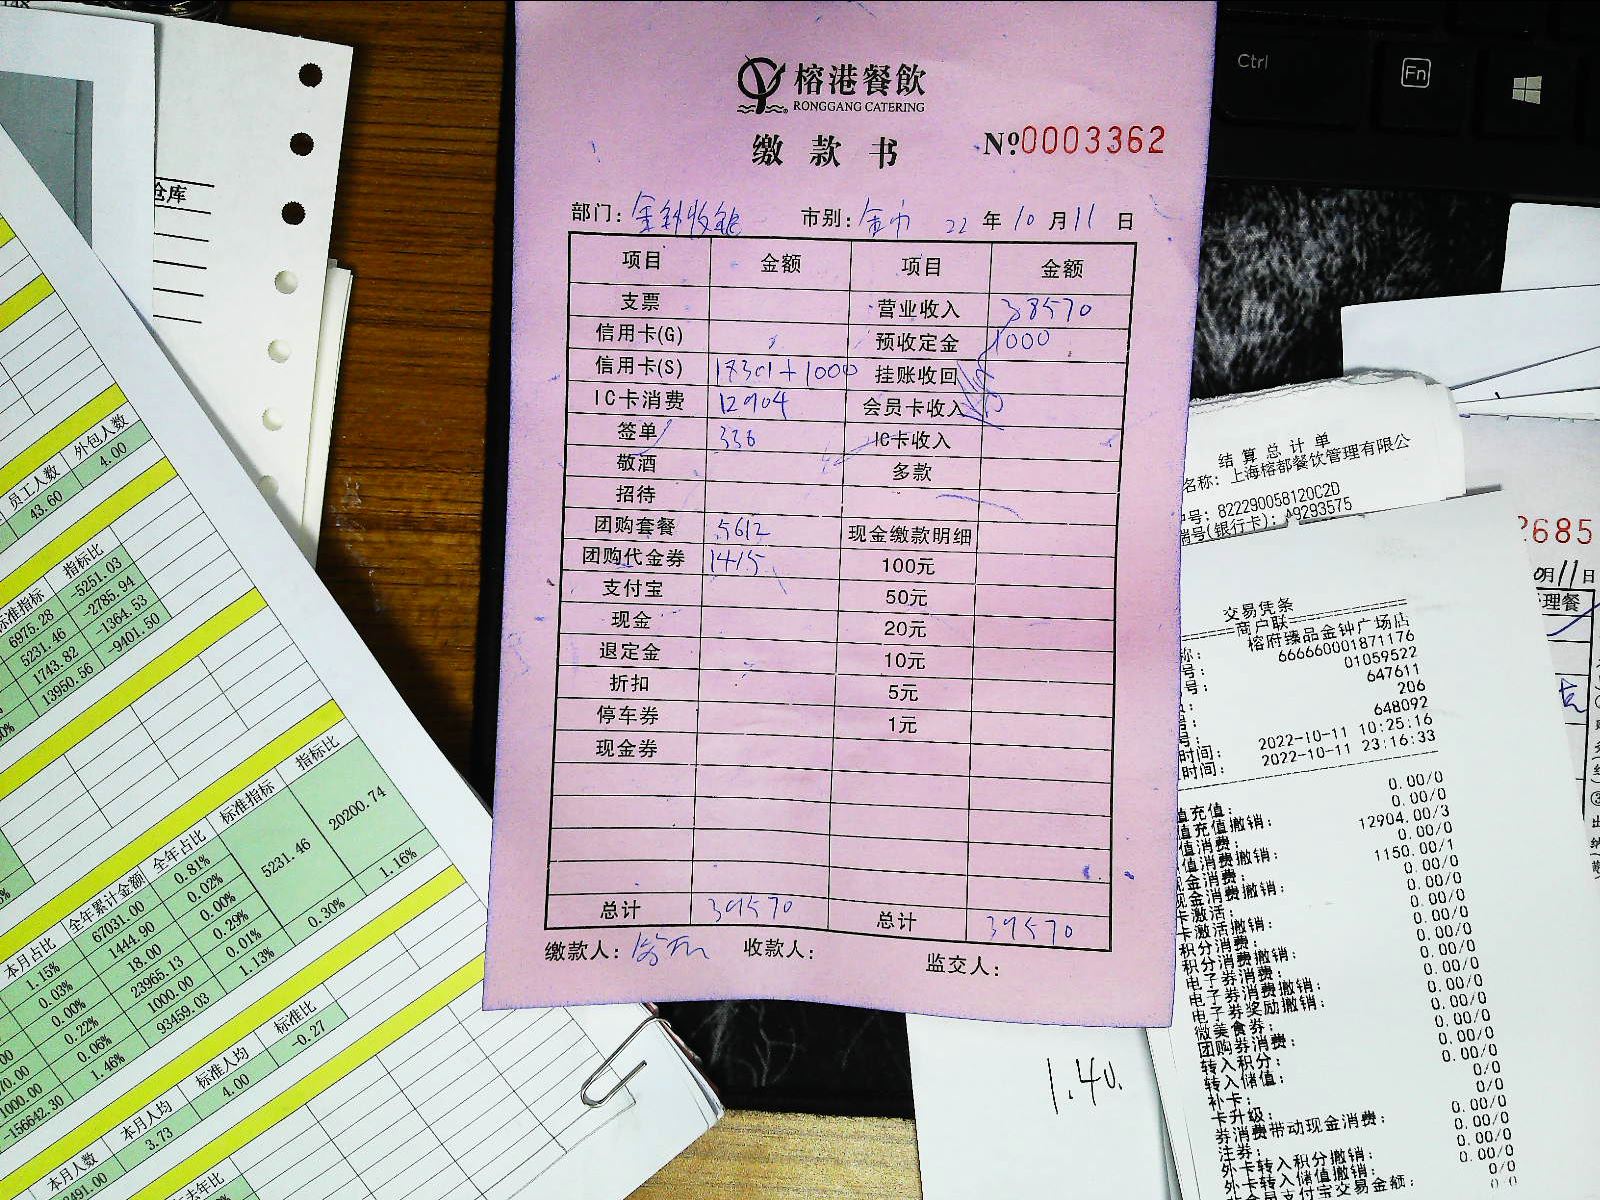 榕港餐飲
RONGGANG CATERING
缴款书 №0003362
部门: 金钟收银 市别: 金市 22年10月11日
项目 金额 项目 金额
支票 营业收入 38570
信用卡(G) 预收定金 1000
信用卡(S) 18301+1000 挂账收回
IC卡消费 12904 会员卡收入
签单 336 IC卡收入
敬酒 多款
招待
团购套餐 5612 现金缴款明细
团购代金券 1415 100元
支付宝 50元
现金 20元
退定金 10元
折扣 5元
停车券 1元
现金券
总计 39570 总计 39570
缴款人: 收款人: 监交人:
Ctrl Fn
仓库
员工人数 外包人数
43.60 4.00
标准指标 指标比
6975.28 -5251.03
5231.46 -2785.94
1743.82 -1364.53
13950.56 -9401.50
本月占比 全年累计金额 全年占比 标准指标 指标比
1.15% 67031.00 0.81% 5231.46 20200.74
0.03% 1444.90 0.02%
0.00% 18.00 0.00%
0.22% 23965.13 0.29%
0.06% 1000.00 0.01%
-156642.30 1.46% 93459.03 1.13% 0.30% 1.16%
本月人数 本月人均 标准人均 标准比
3.73 4.00 -0.27
结算总计单
名称: 上海榕都餐饮管理有限公
号: 822290058120C2D
号(银行卡): A9293575
交易凭条
商户联
榕府臻品金钟广场店
666660001871176
01059522
647611
206
648092
时间: 2022-10-11 10:25:16
时间: 2022-10-11 23:16:33
值充值: 0.00/0
值充值撤销: 0.00/0
值消费: 12904.00/3
值消费撤销: 0.00/0
现金消费: 1150.00/1
现金消费撤销: 0.00/0
卡激活: 0.00/0
卡激活撤销: 0.00/0
积分消费: 0.00/0
积分消费撤销: 0.00/0
电子券消费: 0.00/0
电子券消费撤销: 0.00/0
电子券奖励撤销: 0.00/0
微美食券: 0.00/0
团购券消费: 0.00/0
转入积分: 0.00/0
转入储值: 0.00/0
补卡: 0/0
卡升级: 0/0
券消费带动现金消费: 0.00/0
注券: 0.00/0
外卡转入积分撤销: 0.00/0
外卡转入储值撤销: 0.00/0
支付宝交易金额: 0/0
1.40.
2685
月11日
理餐